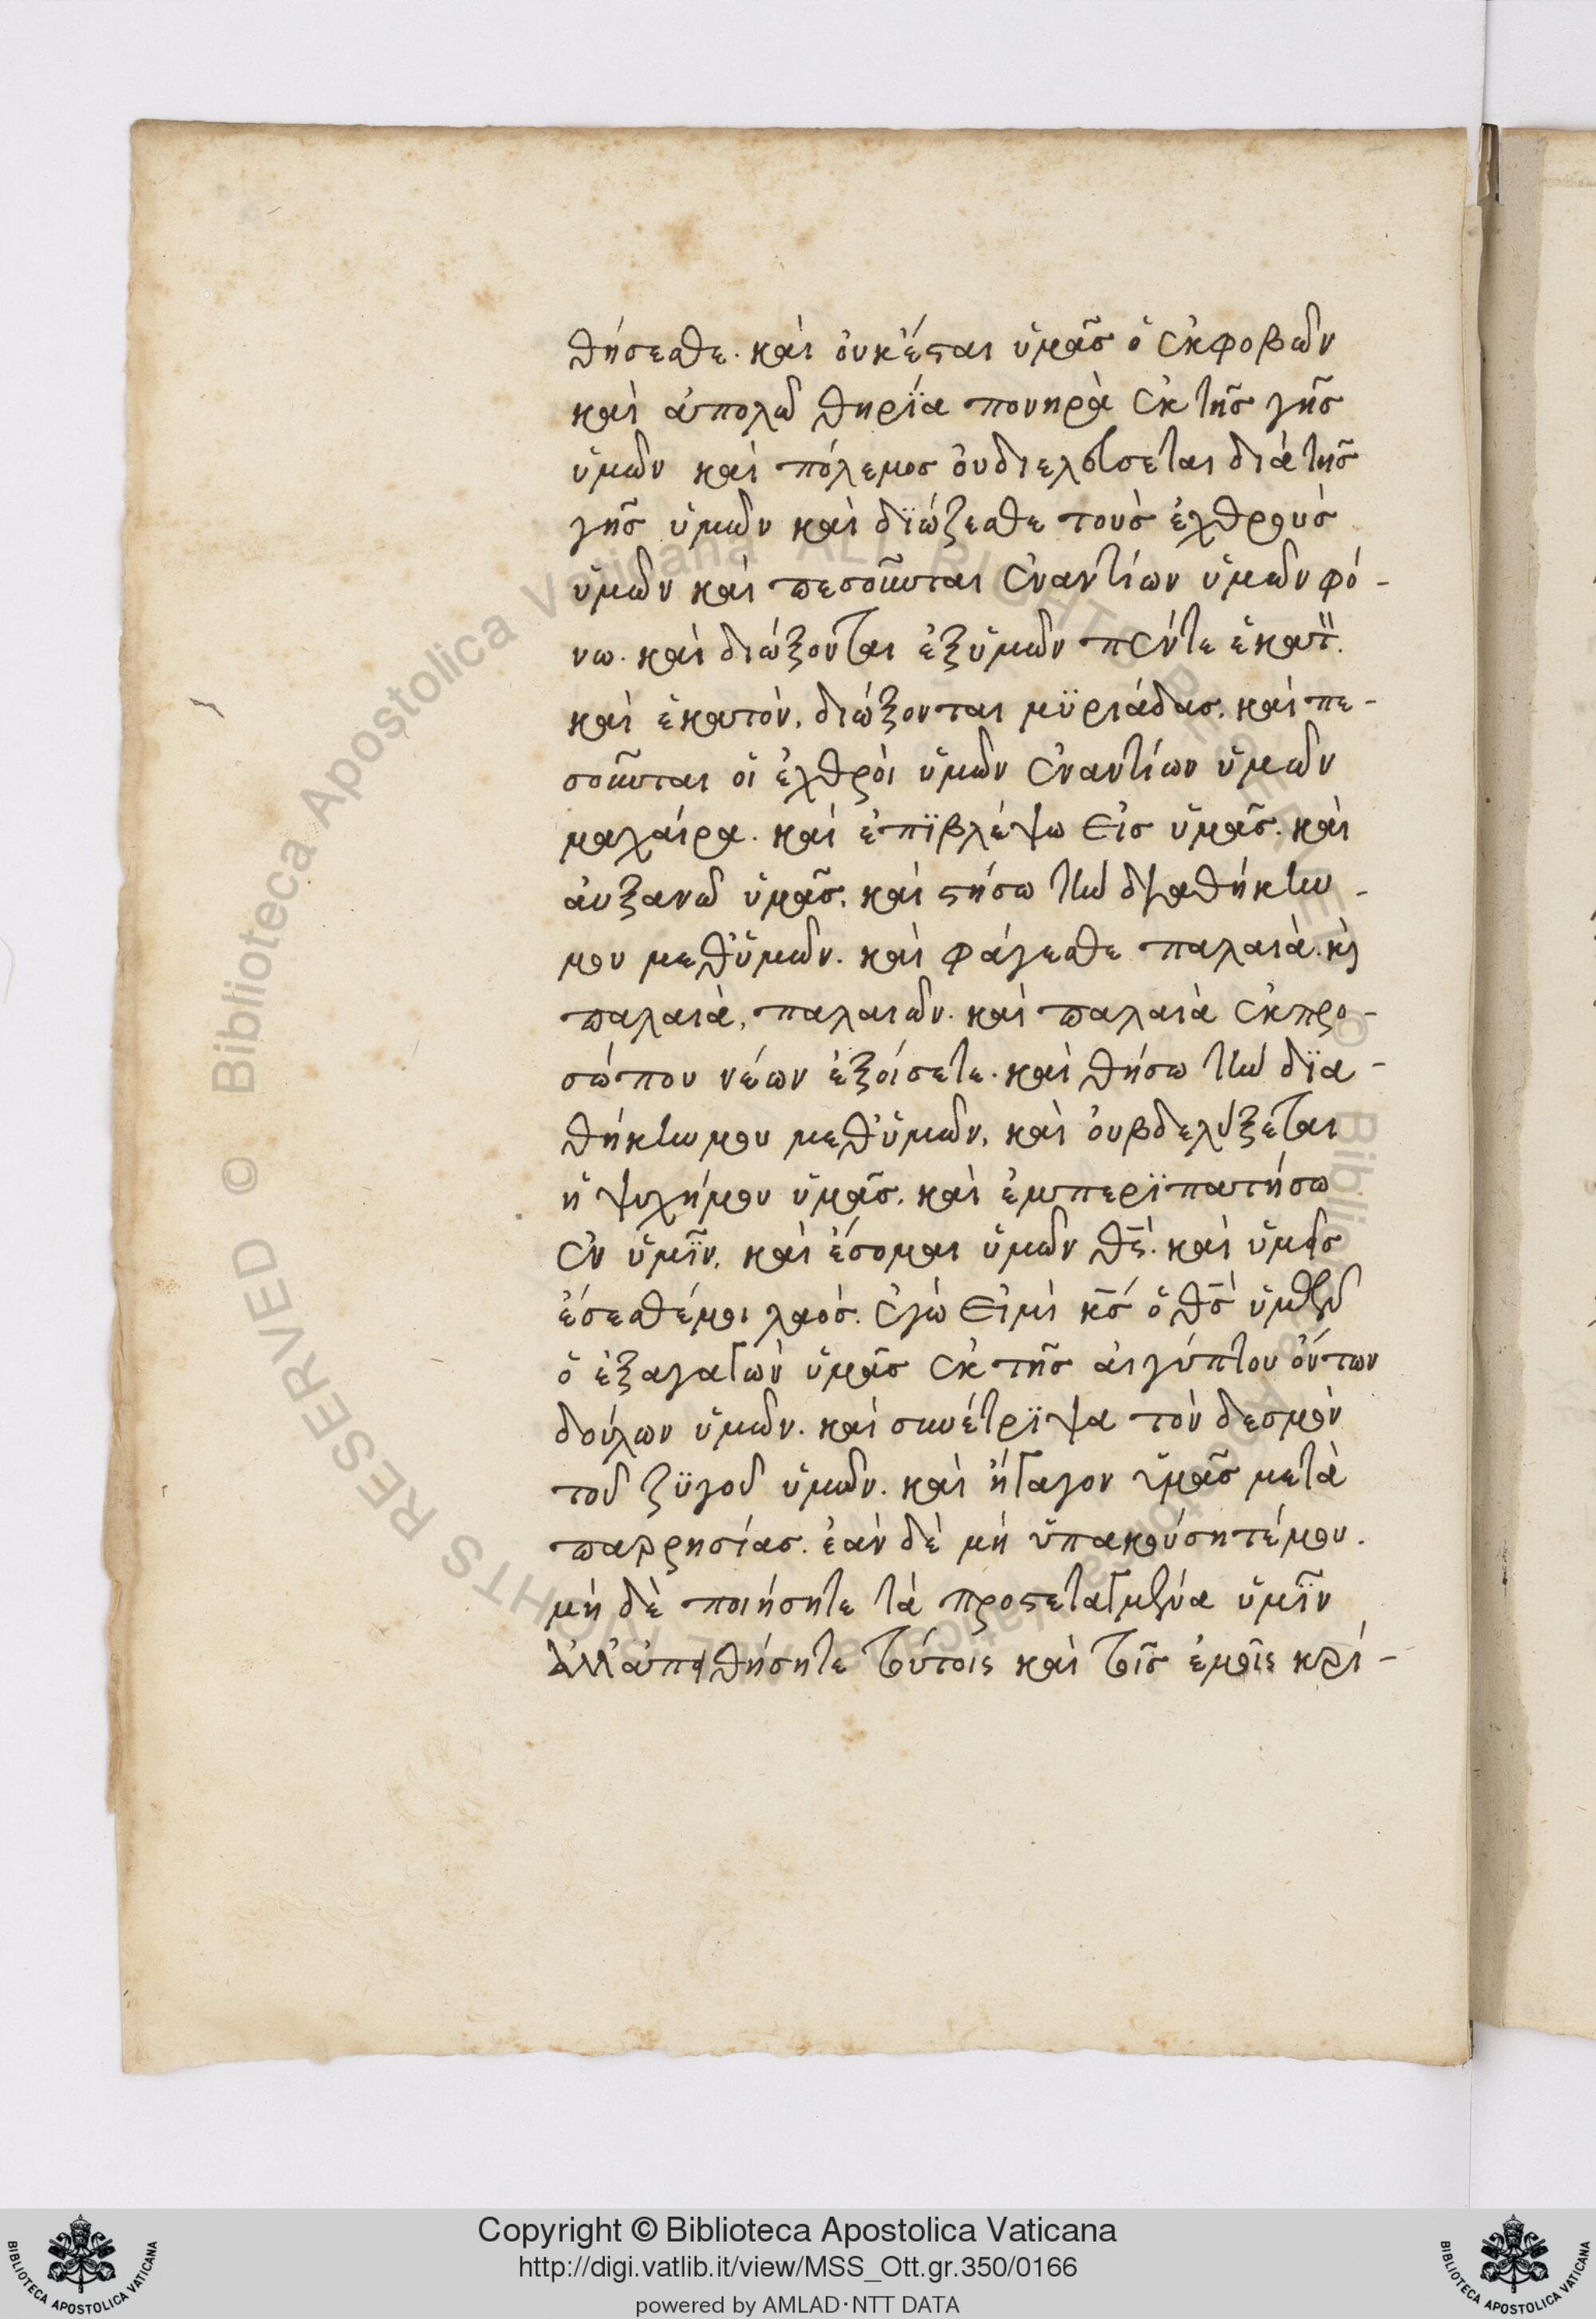 θήσεσθε. καὶ ὀυκέσται ὑμᾶς ὁ ἐκφοβῶν
καὶ ἀπολῶ θηρΐα πονηρὰ ἐκ τῆς γῆς
ὑμῶν καὶ πόλεμος ὀυδιελεύσεται διὰ τῆς
γῆς ὑμῶν καὶ δϊώξεσθε τοὺς ἐχθροὺς
ὑμῶν καὶ πεσοῦνται ἐναντίων ὑμῶν φό-
νω. καὶ διώξονται ἐξὑμῶν πέντε ἑκατ̈.
καὶ ἑκατὸν, διώξονται μϋριάδας. καὶ πε-
σοῦνται ὁι ἐχθρὸι ὑμῶν ἐναντίων ὑμῶν
μαχάιρα. καὶ ἐπϊβλέψω εἰς ὑμᾶς. καὶ
ἀυξανῶ ὑμᾶς. καὶ στήσω τὴν διαθήκην-
μου μεθ᾽ὑμῶν. καὶ φάγεσθε παλαιὰ. κὶ
παλαιὰ, παλαιῶν. καὶ παλαιὰ ἐκπρο-
σώπου νέων ἐξοίσετε. καὶ θήσω τὴν δϊα-
θήκην μου μεθ᾽ὑμῶν. καὶ ὀυβδελύξεται
ἡ ψυχήμου ὑμᾶς. καὶ ἐμπερϊπατήσω
ἐν ὑμῖν. καὶ ἔσομαι ὑμῶν θς̄. καὶ ὑμεῖς
ἔσεσθέμοι λαὸς. ἐγὼ εἰμὶ κς̄ ὁ θς̄ ὑμῶν
ὁ ἐξαγαγὼν ὑμᾶς ἐκ τῆς ἀιγύπτου ὄντων
δούλων ὑμῶν. καὶ συνέτρϊψα τὸν δεσμὸν
τοῦ ζϋγοῦ ὑμῶν. καὶ ἤγαγον ὑμᾶς μετὰ
παῤῥησίας. ἐὰν δὲ μὴ ὑπακούσητέμου.
μὴ δὲ ποιήσητε τὰ προστεταγμένα ὑμῖν
ἀλλ᾽ἀπειθήσητε τούτοις καὶ τοῖς ἐμοῖς κρί-
Copyright © Biblioteca Apostolica Vaticana
http://digi.vatlib.it/view/MSS_Ott.gr.350/0166
powered by AMLAD·NTT DATA
BIBLIOTECA APOSTOLICA VATICANA
BIBLIOTECA APOSTOLICA VATICANA
© Biblioteca Apostolica Vaticana ALL RIGHTS RESERVED
© Biblioteca Apostolica Vaticana ALL RIGHTS RESERVED